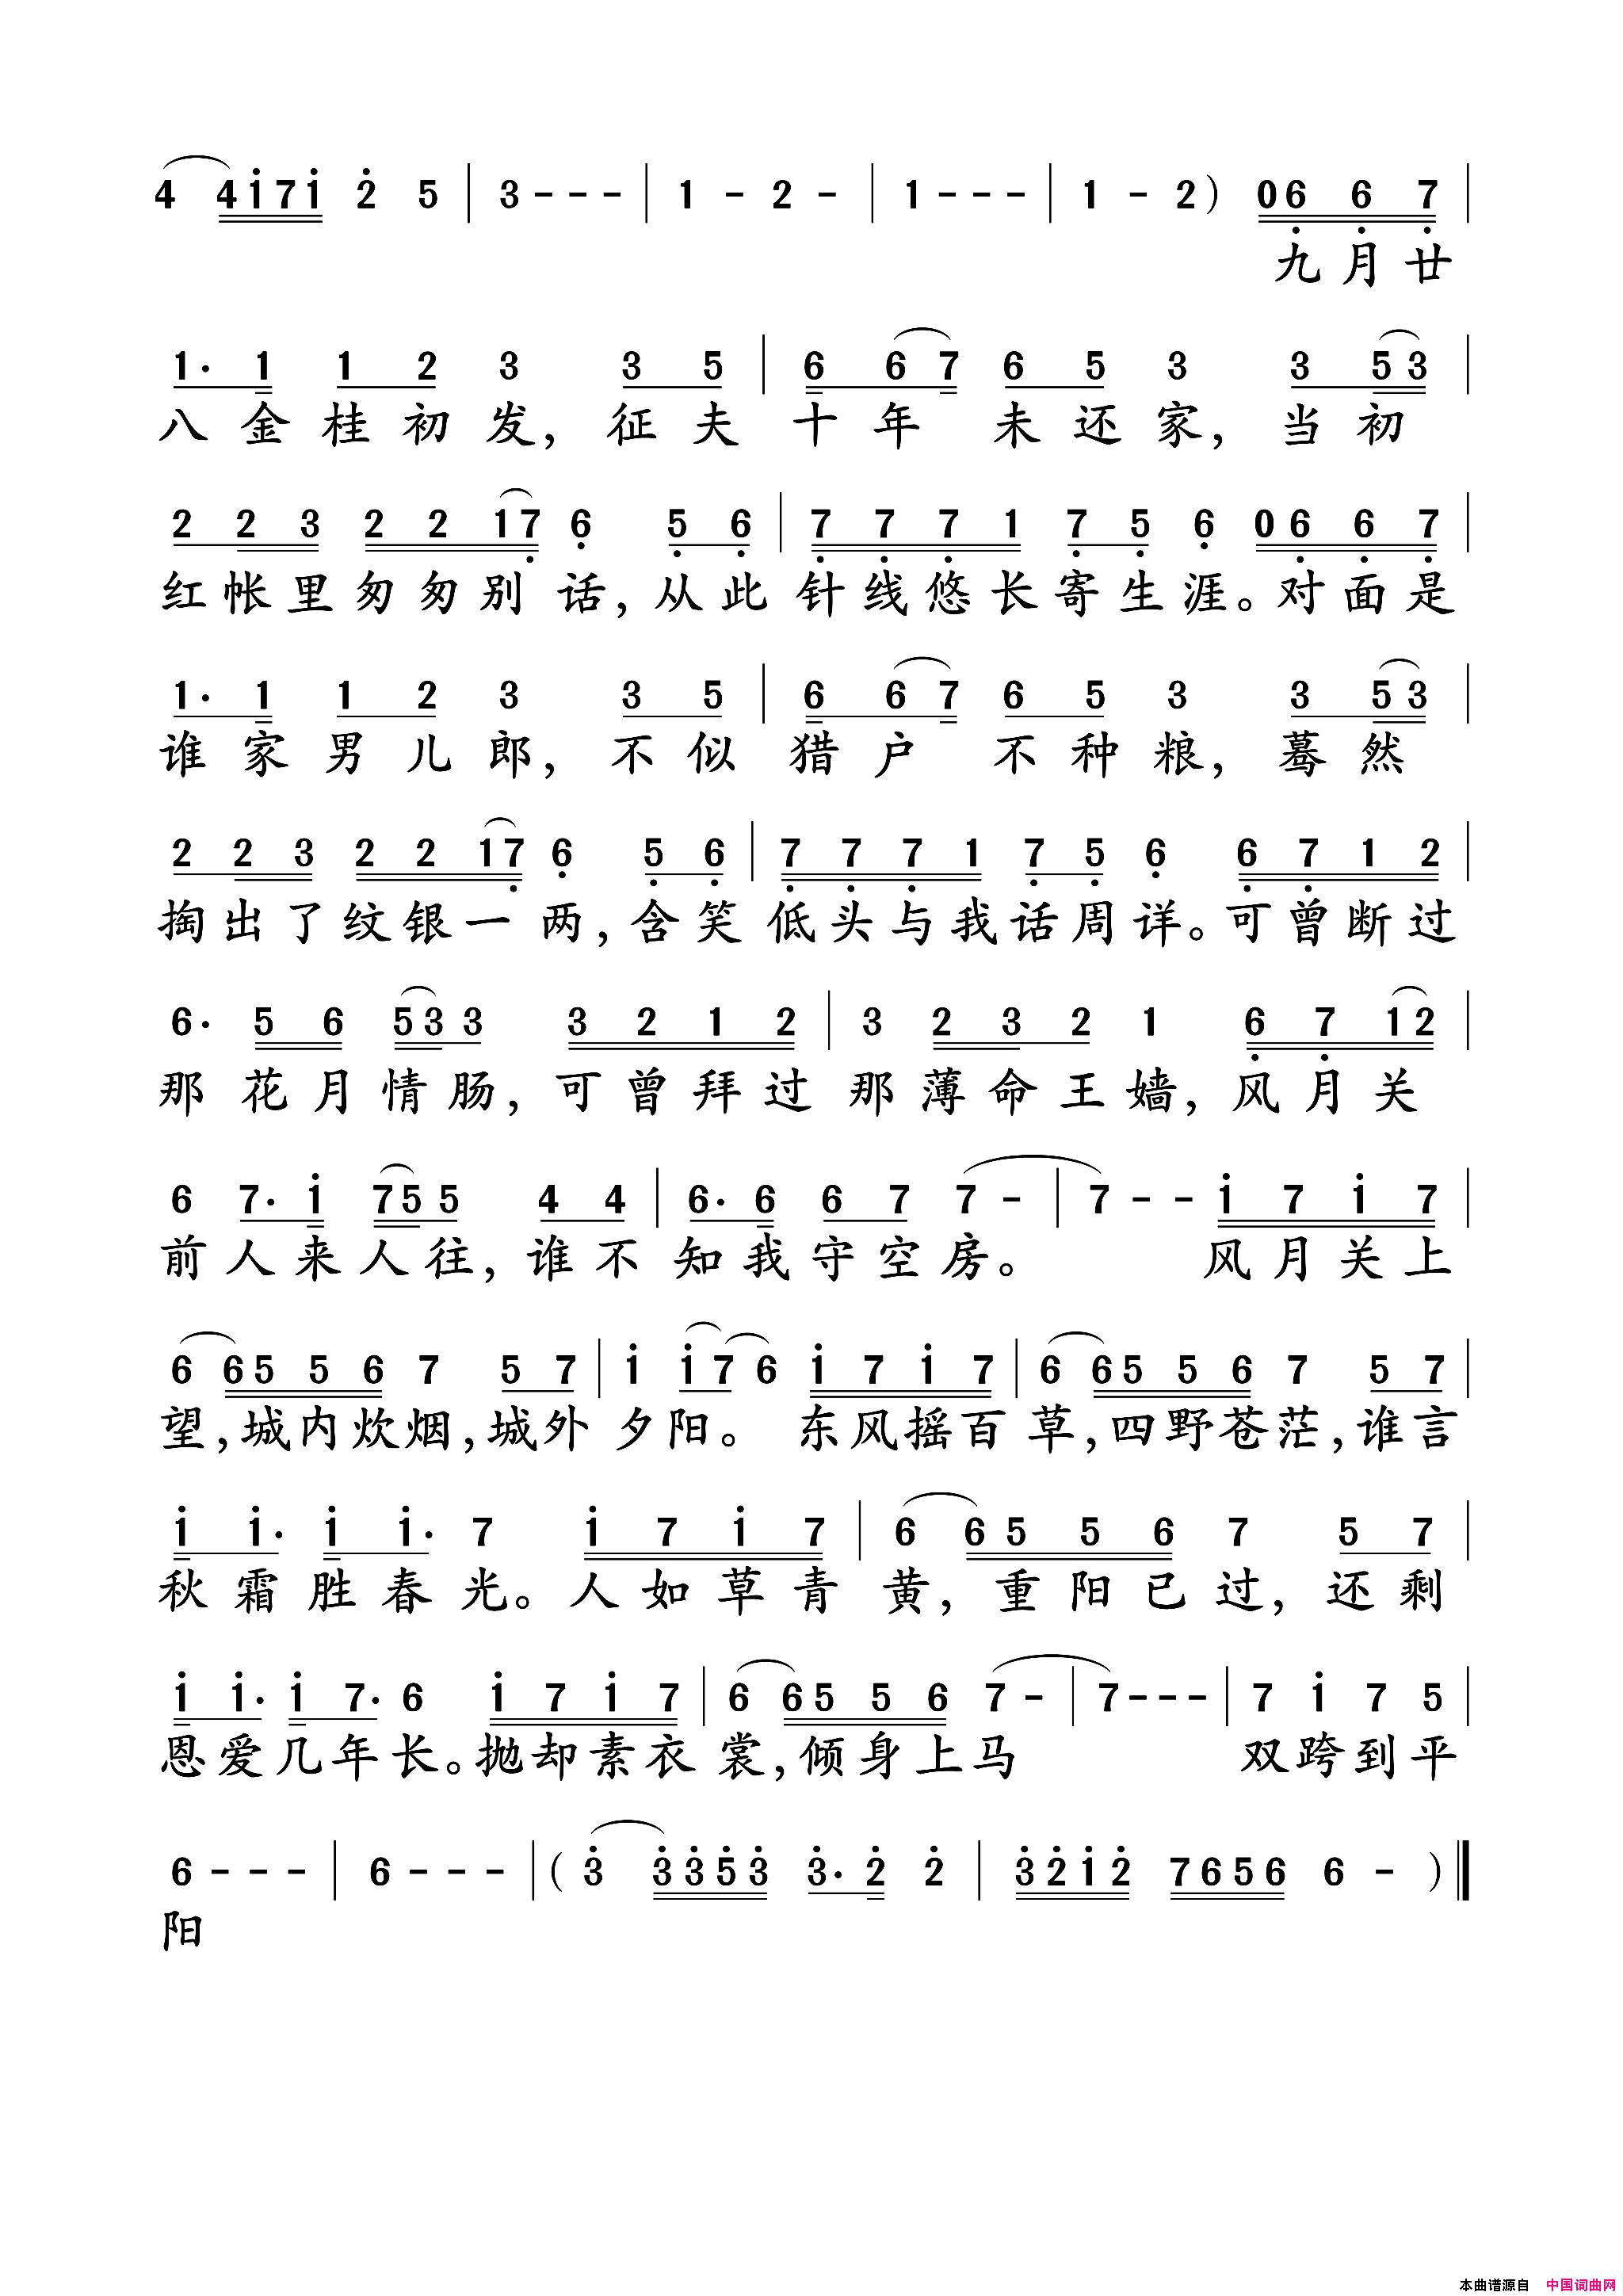 4 4 1 7 1 2 5 | 3 - - - | 1 - 2 - | 1 - - - | 1 - 2 ) 0 6 6 7 |
九月廿
1. 1 1 2 3 3 5 | 6 6 7 6 5 3 3 5 3 |
八金桂初发，征夫十年未还家，当初
2 2 3 2 2 1 7 6 5 6 | 7 7 7 1 7 5 6 0 6 6 7 |
红帐里匆匆别话，从此针线悠长寄生涯。对面是
1. 1 1 2 3 3 5 | 6 6 7 6 5 3 3 5 3 |
谁家男儿郎，不似猎户不种粮，蓦然
2 2 3 2 2 1 7 6 5 6 | 7 7 7 1 7 5 6 6 7 1 2
掏出了纹银一两，含笑低头与我话周详。可曾断过
6. 5 6 5 3 3 3 2 1 2 | 3 2 3 2 1 6 7 1 2 |
那花月情肠，可曾拜过那薄命王嫱，风月关
6 7. 1 7 5 5 4 4 | 6. 6 6 7 7 - | 7 - - 1 7 1 7 |
前人来人往，谁不知我守空房。风月关上
6 6 5 5 6 7 5 7 | 1 1 7 6 1 7 1 7 | 6 6 5 5 6 7 5 7 |
望，城内炊烟，城外夕阳。东风摇百草，四野苍茫，谁言
1 1. 1 1. 7 1 7 1 7 | 6 6 5 5 6 7 5 7 |
秋霜胜春光。人如草青黄，重阳已过，还剩
1 1. 1 7. 6 1 7 1 7 | 6 6 5 5 6 7 - | 7 - - - | 7 1 7 5 |
恩爱几年长。抛却素衣裳，倾身上马双跨到平
6 - - - | 6 - - - | ( 3 3 3 5 3 3. 2 2 | 3 2 1 2 7 6 5 6 6 - ) ‖
阳
本曲谱源自 中国词曲网